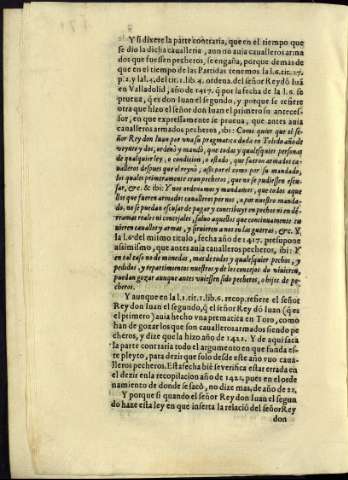 Y si dixere la parte contraria, que en el tiempo que
se dio la dicha caualleria, aun no auia caualleros arma
dos que fuessen pecheros, se engaña, porque demas de
que en el tiempo de las Partidas tenemos la l.6.tit.27.
p.2. y la l.4. del tit.1. lib.4. ordena. del señor Rey dō Iuā
en Valladolid, año de 1417. q̄ por la fecha de la l.5. se
prueua, q̄ es don Iuan el segundo, y porque se refiere
otra que hizo el señor don Iuan el primero su anteces-
sor, en que expressamente se prueua, que antes auia
caualleros armados pecheros, ibi: Como quier que el se-
ñor Rey don Iuan por una su pragmatica dada en Toledo año de
veynte y dos, ordenò y mandò, que todas y qualesquier personas
de qualquier ley, o condicion, o estado, que fueron armados ca-
ualleros despues que el reynò, assi por el como por su mandado,
los quales primeramente eran pecheros, que no se pudiessen escu-
sar, &c. & ibi: Y nos ordenamos y mandamos, que todos aque
llos que fueren armados caualleros por nos, o por nuestro manda-
do, no se puedan escusar de pagar y contribuyr en pechos ni en de-
rramas reales ni concejales, saluo aquellos que continuamente tu
uieren cauallos y armas, y siruieren a nos en las guerras, &c. Y
la l.6. del mismo titulo, fecha año de 1417. presupone
assimismo, que antes auia caualleros pecheros, ibi: Y
en tal caso no de monedas, mas de todos y qualesquier pechos, y
pedidos, y repartimientos nuestros y de los concejos do viuieren,
puedan gozar aunque antes vuiessen sido pecheros, o hijos de pe-
cheros.
Y aunque en la l.1. tit.1. lib.6. recop. refiere el señor
Rey don Iuan el segundo, q̄ el señor Rey dō Iuan (q̄ es
el primero) auia hecho vna prematica en Toro, como
han de gozar los que son caualleros armados siendo pe
cheros, y dize que la hizo año de 1422. Y de aqui saca
la parte contraria todo el argumento en que funda es-
te pleyto, para dezir que solo desde este año vuo caua-
lleros pecheros. Esta fecha biē se verifica estar errada en
el dezir en la recopilacion año de 1422. pues en el orde
namiento de donde se sacò, no dize mas, de año de 22.
Y porque si quando el señor Rey don Iuan el segun
do haze esta ley en que inserta la relaciō del señor Rey
don